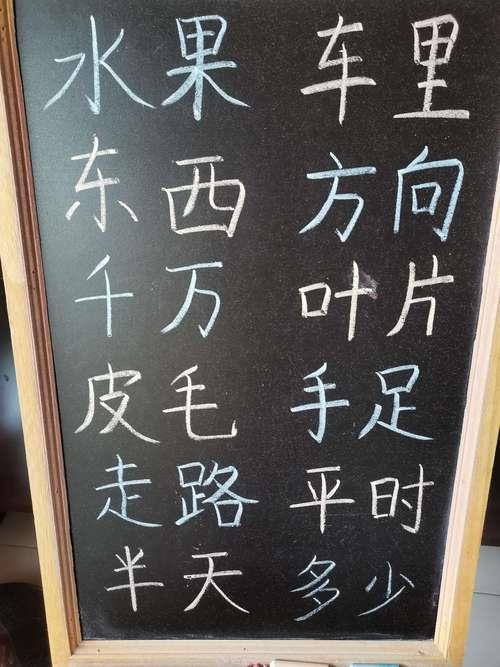 水果 车里
东西 方向
千万 叶片
皮毛 手足
走路 平时
半天 多少